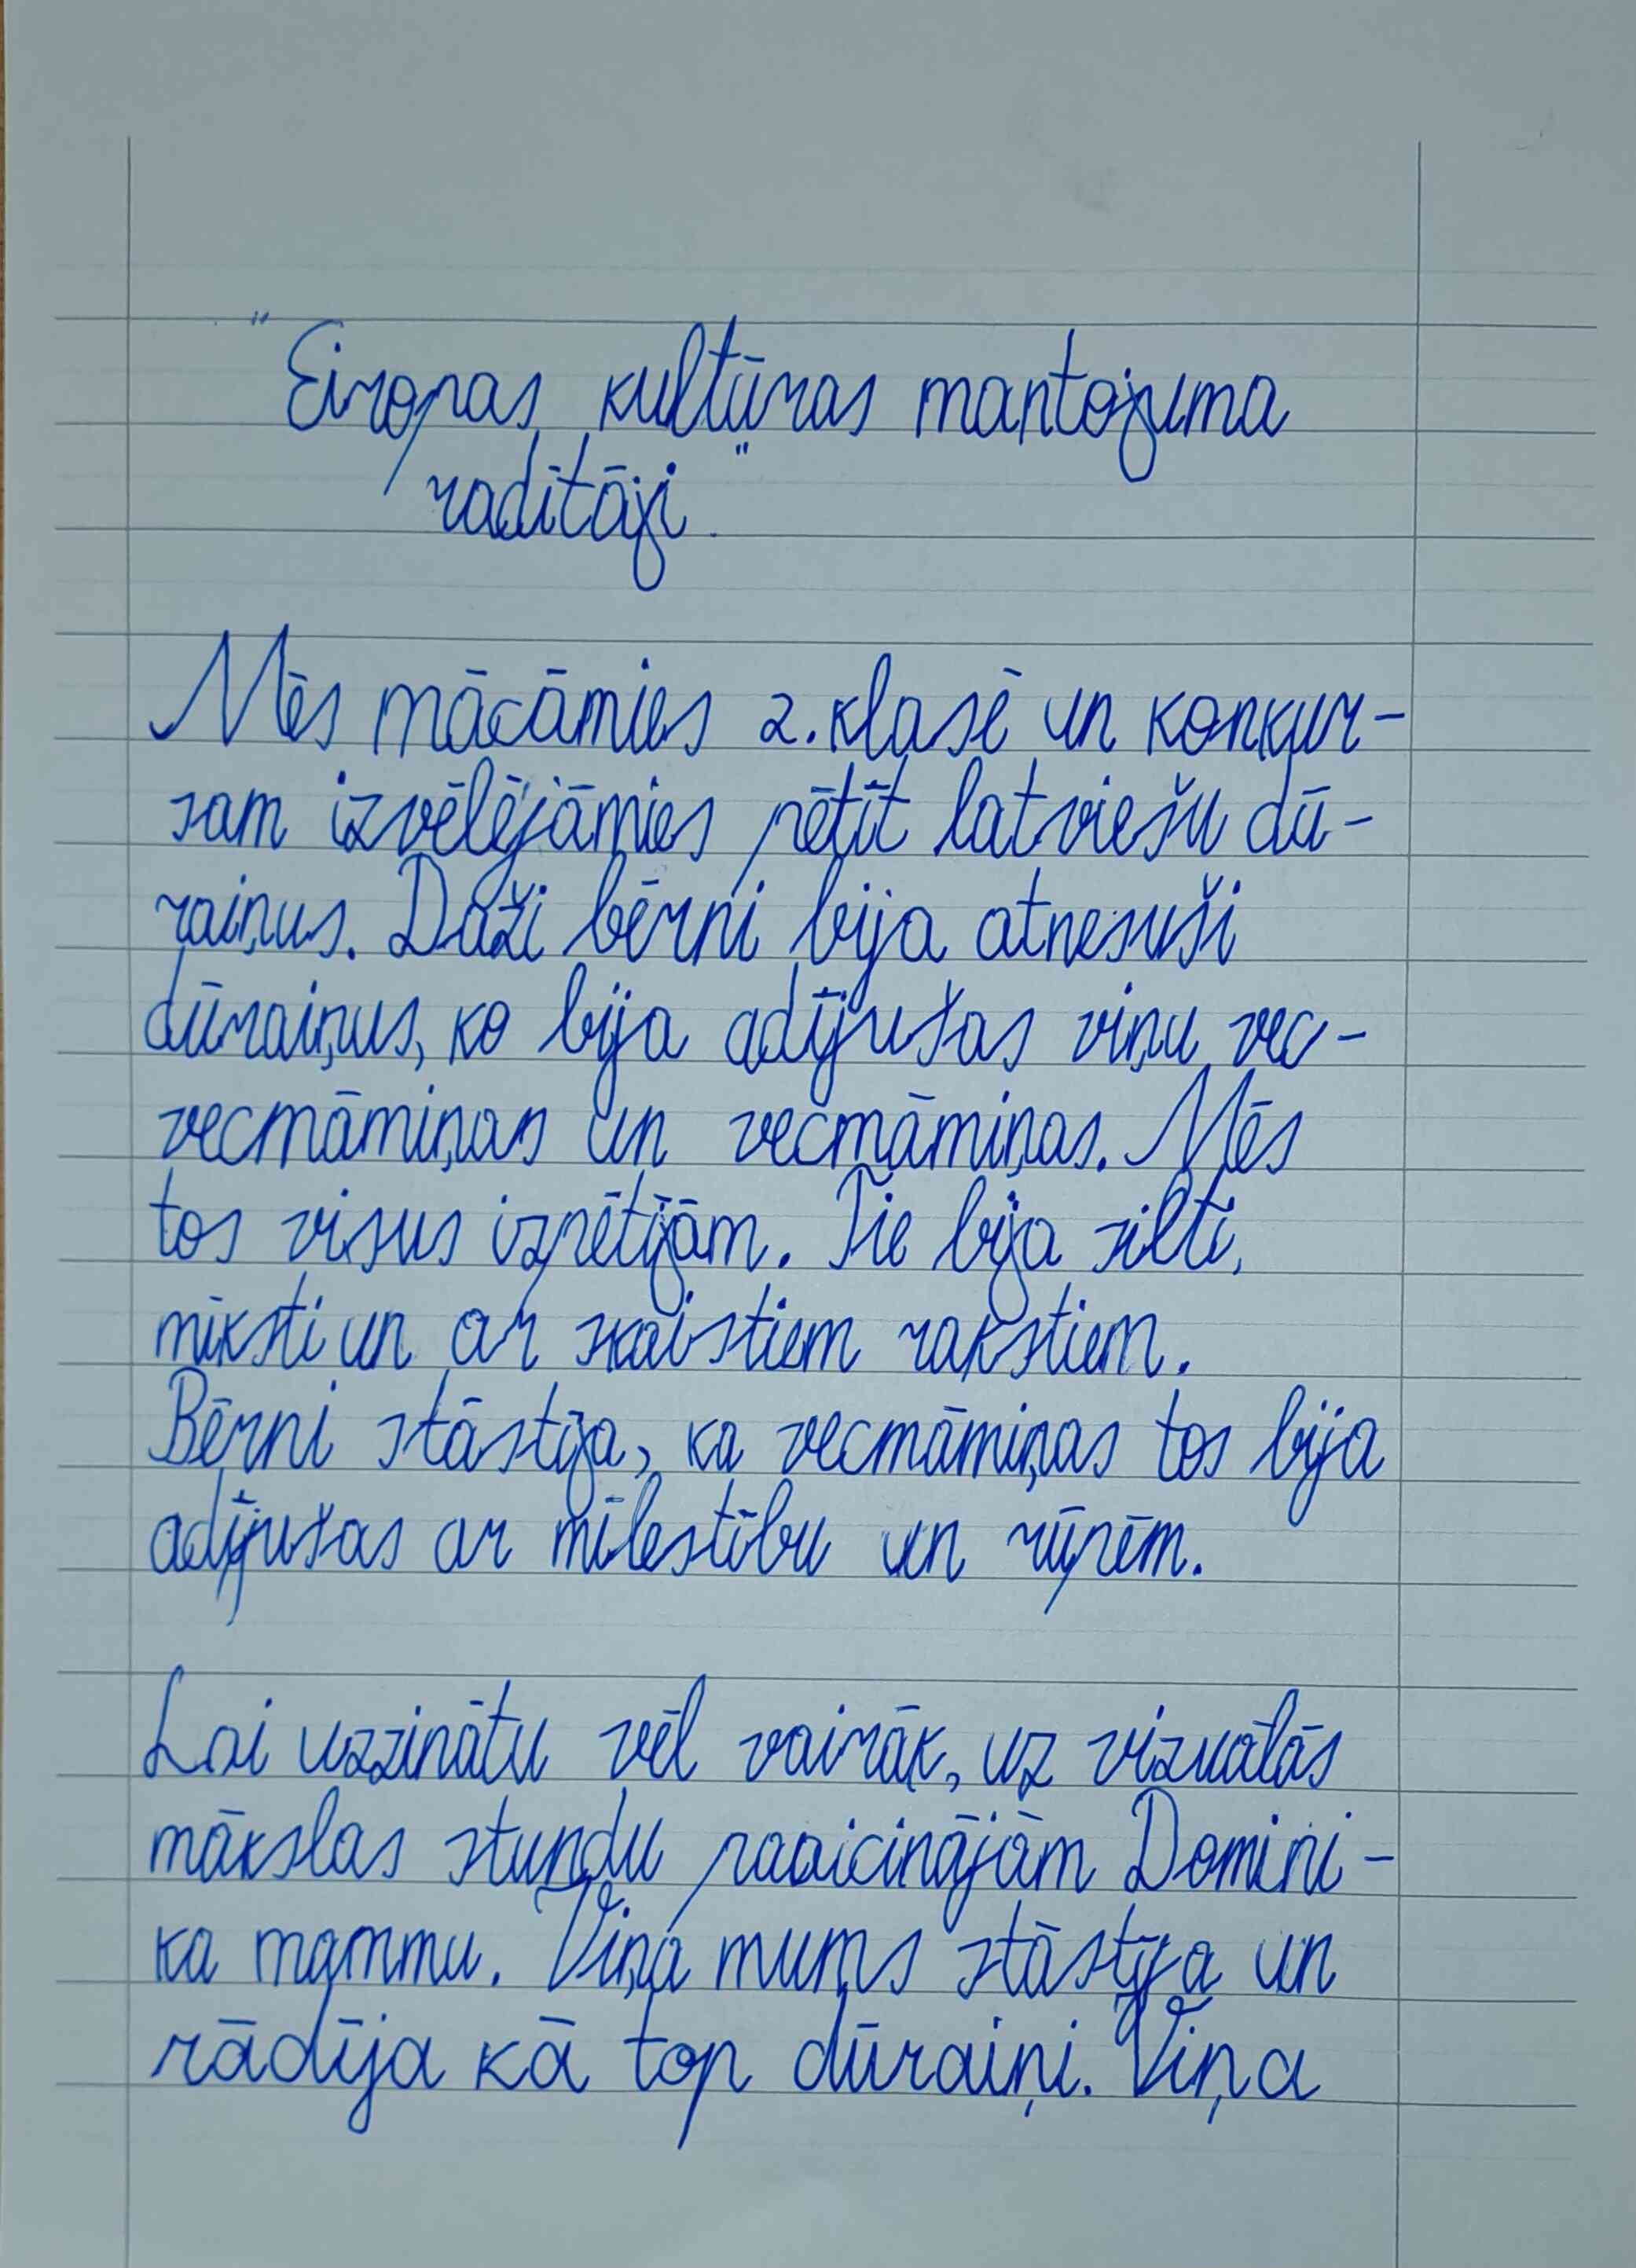 "Eiropas kultūras mantojuma
radītāji."
Mēs mācāmies 2. klasē un konkur-
sam izvēlējāmies pētīt latviešu dū-
raiņus. Daži bērni bija atnesuši
dūraiņus, ko bija adījušas viņu vec-
vecmāmiņas un vecmāmiņas. Mēs
tos visus izpētījām. Tie bija silti,
mīksti un ar skaistiem rakstiem.
Bērni stāstīja, ka vecmāmiņas tos bija
adījušas ar mīlestību un rūpēm.
Lai uzzinātu vēl vairāk, uz vizuālās
mākslas stundu paaicinājām Domini-
ka mammu. Viņa mums stāstīja un
rādīja kā top dūraiņi. Viņa